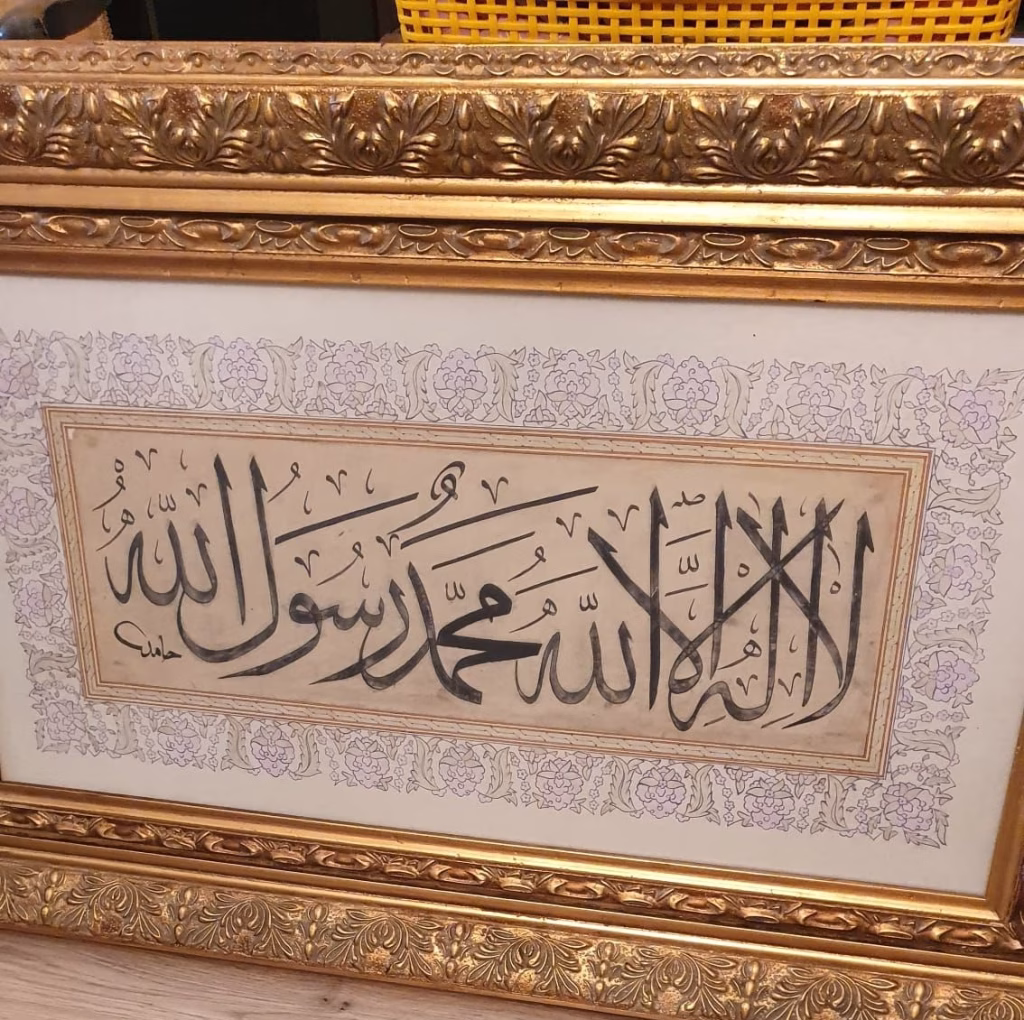 لا إله إلا الله محمد رسول الله
حامد